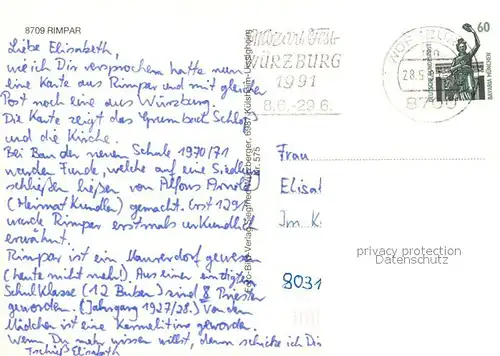 8709 RIMPAR
Liebe Elisabeth,
wie ich Dir versprochen hatte nun
eine Karte aus Rimpar und mit gleicher
Post noch eine aus Würzburg.
Die Karte zeigt das Grumbach Schloß
und die Kirche.
Bei Bau der neuen Schule 1970/71
wurden Funde, welche auf eine Siedlung
schließen ließen von Alfons Arnold
(Heimat Kundler) gemacht. Erst 1291
wurde Rimpar erstmals urkundlich
erwähnt.
Rimpar ist ein Maurerdorf gewesen
(heute nicht mehr). Aus einer einzigen
Schulklasse (12 Buben) sind 8 Priester
geworden. (Jahrgang 1927/28.) Von den
Mädchen ist eine Karmelitin geworden.
Wenn Du mehr wissen willst, dann schicke ich Dir
Tschüß Elisabeth
Mozart Fest
WÜRZBURG
1991
8.6.-29.6.
28.5.
8700
60
DEUTSCHE BUNDESPOST
BAVARIA MÜNCHEN
Nr. 575
Frau
Elisa
Im K
8031
privacy protection
Datenschutz